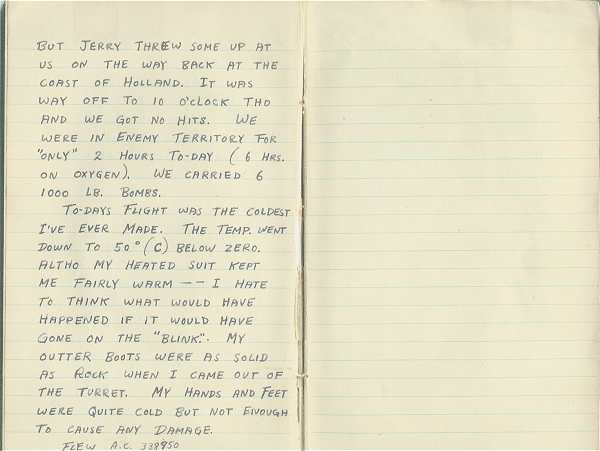 BUT JERRY THREW SOME UP AT
US ON THE WAY BACK AT THE
COAST OF HOLLAND. IT WAS
WAY OFF TO 10 O'CLOCK THO
AND WE GOT NO HITS. WE
WERE IN ENEMY TERRITORY FOR
"ONLY" 2 HOURS TO-DAY (6 HRS.
ON OXYGEN). WE CARRIED 6
1000 LB. BOMBS.
TO-DAYS FLIGHT WAS THE COLDEST
I'VE EVER MADE. THE TEMP. WENT
DOWN TO 50° (C) BELOW ZERO.
ALTHO MY HEATED SUIT KEPT
ME FAIRLY WARM -- I HATE
TO THINK WHAT WOULD HAVE
HAPPENED IF IT WOULD HAVE
GONE ON THE "BLINK". MY
OUTTER BOOTS WERE AS SOLID
AS ROCK WHEN I CAME OUT OF
THE TURRET. MY HANDS AND FEET
WERE QUITE COLD BUT NOT ENOUGH
TO CAUSE ANY DAMAGE.
FLEW A.C. 338950